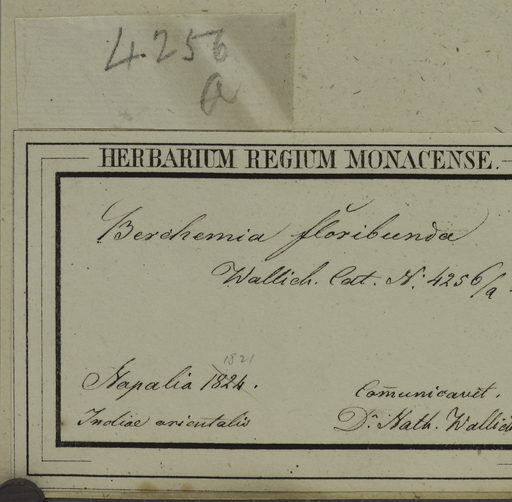 4256
a
HERBARIUM REGIUM MONACENSE.
Berchemia floribunda
Wallich. Cat. N. 4256/a
1821
Napalia 1824.
Indiae orientalis
Com̄unicavit.
Dr. Nath. Wallich